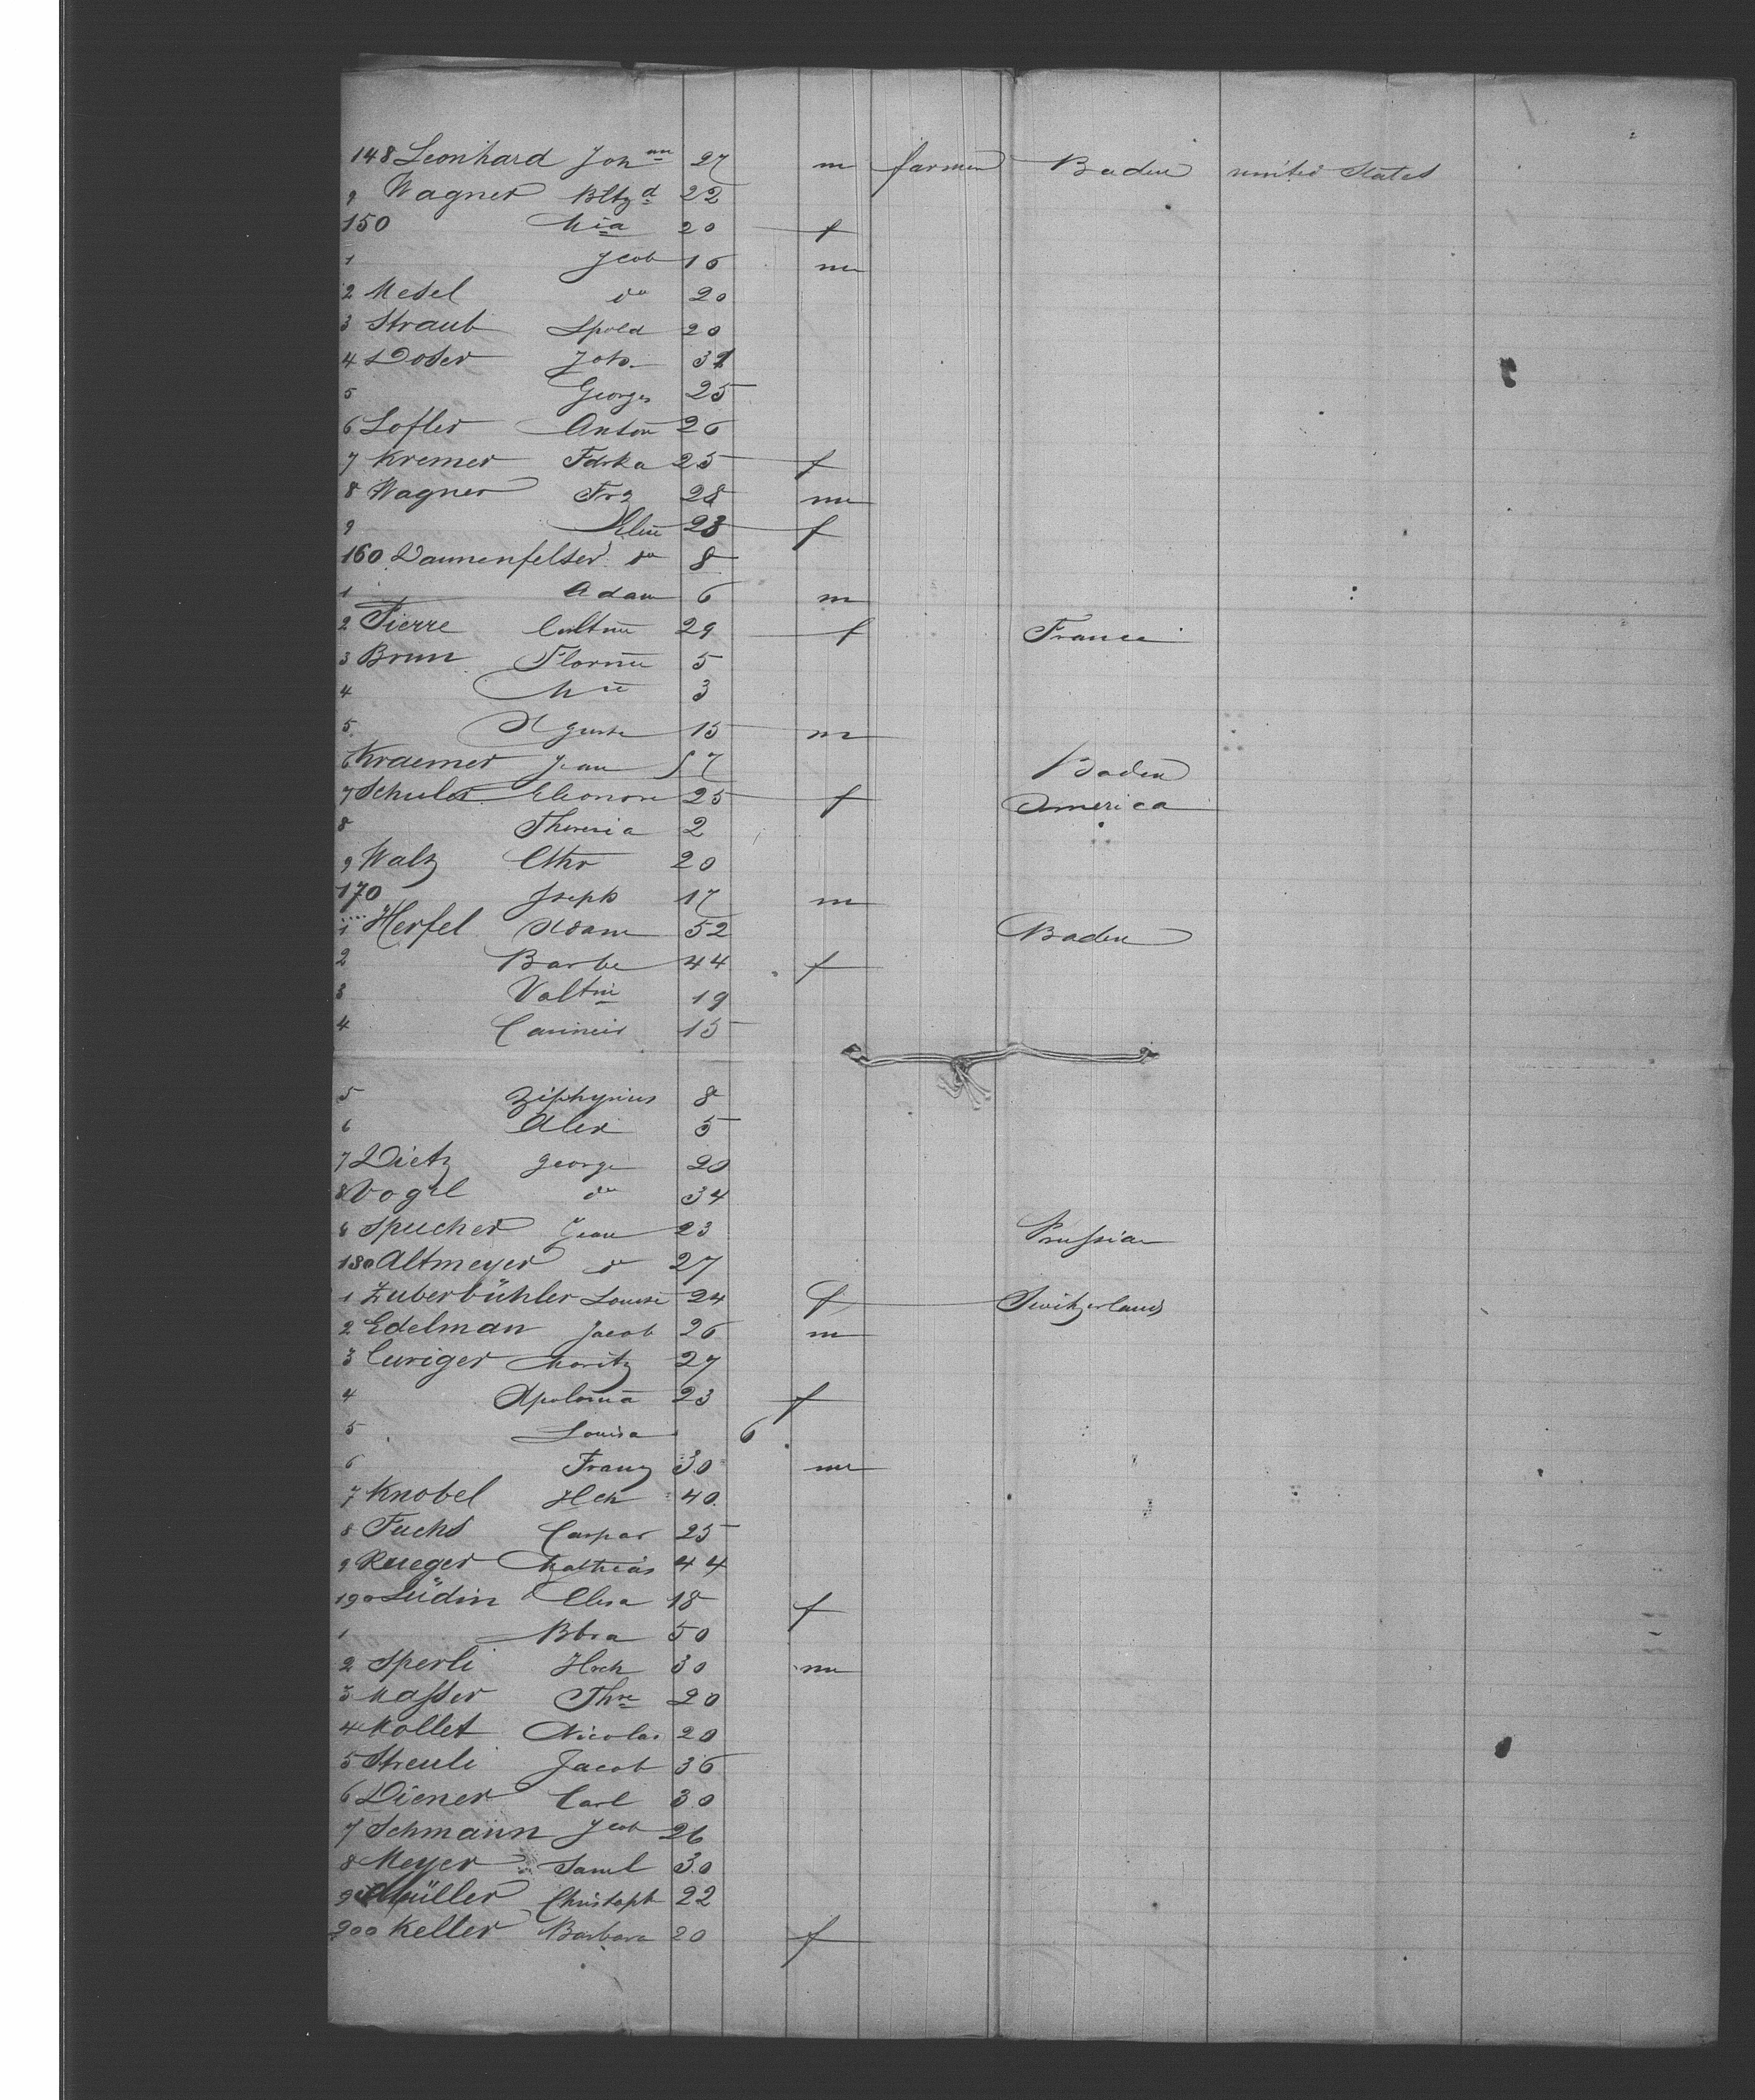 148 Leonhard Johann 27 m farmer Baden united States
9 Wagner Bltzd 22
150 Mia 20 f
1 Jcob 16 m
2 Mesel do 20
3 Straub Lpold 20
4 Doser Joh. 31
5 Georges 25
6 Lofler Anton 26
7 Kremer Fdrka 25 f
8 Wagner Frz 28 m
9 28 f
160 Dannenfelser do 8
1 Adam 6 m
2 Pierre 29 f France
3 Brun 5
4 3
5 Aguste 15 m
6 Kraemer Jean 57 Baden
7 Schuler Eleonore 25 f America
8 Theresia 2
9 Walz Cthr 20
170 Jseph 17 m
1 Herfel Adam 52 Baden
2 Barbe 44 f
3 Valtin 19
4 15
5 Ziphyrius 8
6 Alex 5
7 Dietz george 20
8 Vogel do 34
8 Spucher Jean 23 Prussia
180 Altmeyer do 27
1 Zuberbühler Louise 24 f Switzerland
2 Edelman Jacob 26 m
3 Curiger Moritz 27
4 Apolonia 23 f
5 Louisa 6
6 Franz 30 m
7 Knobel Hch 40
8 Fuchs Caspar 25
9 Rueger Mathias 44
190 Lüdin Elisa 18 f
1 Bbra 50
2 Sperli Hrch 30 m
3 Masser Thre 20
4 Mollet Nicolas 20
5 Streuli Jacob 36
6 Diener Carl 30
7 Schmann Jcob 26
8 Meyer Saml 30
9 Müller Christoph 22
200 Keller Barbara 20 f